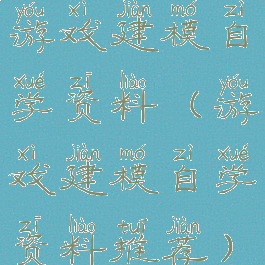 yóu xì jiàn mó zì
游戏建模自
xué zī liào yóu
学资料（游
xì jiàn mó zì xué
戏建模自学
zī liào tuī jiàn
资料推荐）